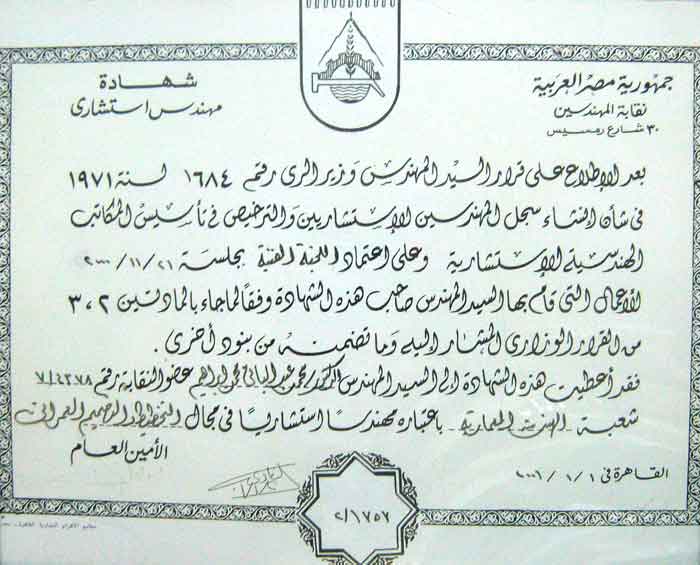 جمهورية مصر العربية
نقابة المهندسين
٣٠ شارع رمسيس
شهادة
مهندس استشارى
بعد الإطلاع على قرار السيد المهندس وزير الرى رقم ١٦٨٤ لسنة ١٩٧١
فى شأن إنشاء سجل المهندسين الإستشاريين والترخيص فى تأسيس المكاتب
الهندسية الإستشارية وعلى اعتماد اللجنة الفنية بجلسة ٢٠٠٠/١١/٢١
لأعمال التى قام بها السيد المهندس صاحب هذه الشهادة وفقاً لما جاء بالمادتين ٣،٢
من القرار الوزارى المشار إليه وما تضمنه من بنود أخرى.
فقد أعطيت هذه الشهادة إلى السيد المهندس الدكتور/ محمد عبد الباقى محمد إبراهيم عضو النقابة رقم ٧/٤٣٧٨
شعبة الهندسة المعمارية باعتباره مهندساً استشارياً فى مجال التخطيط والتصميم العمرانى
الأمين العام
القاهرة فى ٢٠٠١/١/١
٢/١٧٥٢